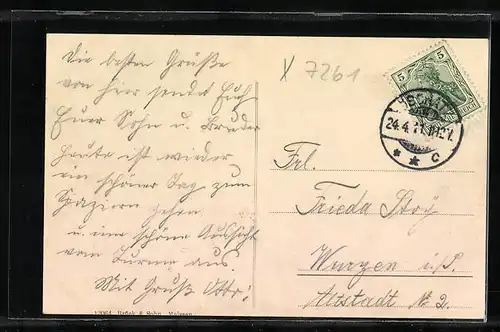 Die besten Grüße
von hier sendet Euch
Euer Sohn u. Bruder
heute ist wieder
ein schöner Tag zum
Spaziern gehen
u. eine schöne Aussicht
vom Turme aus.
Mit Gruß Otto!
7261
5 5
24.4.11
* * c
Frl.
Frieda
Wurzen i/S.
Altstadt № 2.
Brück & Sohn, Meissen